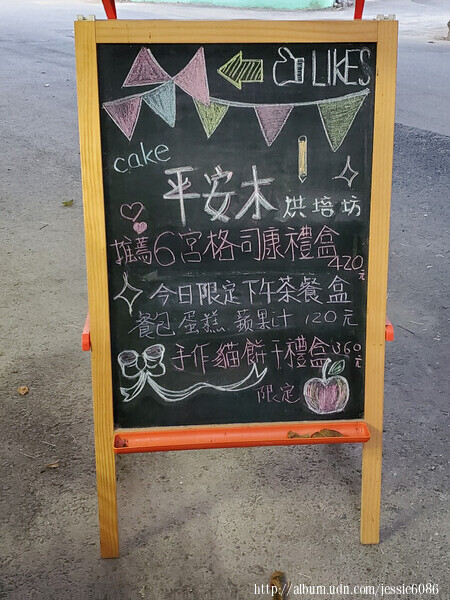 LIKES
cake
平安木 烘培坊
推薦6宮格司康禮盒
420元
今日限定下午茶餐盒
餐包蛋糕蘋果汁 120元
手作貓餅干禮盒360元
限定
http://album.udn.com/jessie6086